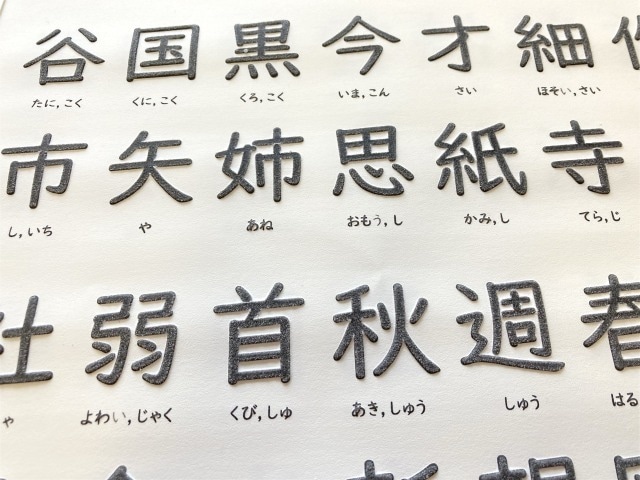 谷 国 黒 今 才 細
たに,こく くに,こく くろ,こく いま,こん さい ほそい,さい
市 矢 姉 思 紙 寺
し,いち や あね おもう,し かみ,し てら,じ
社 弱 首 秋 週 春
ゃ よわい,じゃく くび,しゅ あき,しゅう しゅう はる